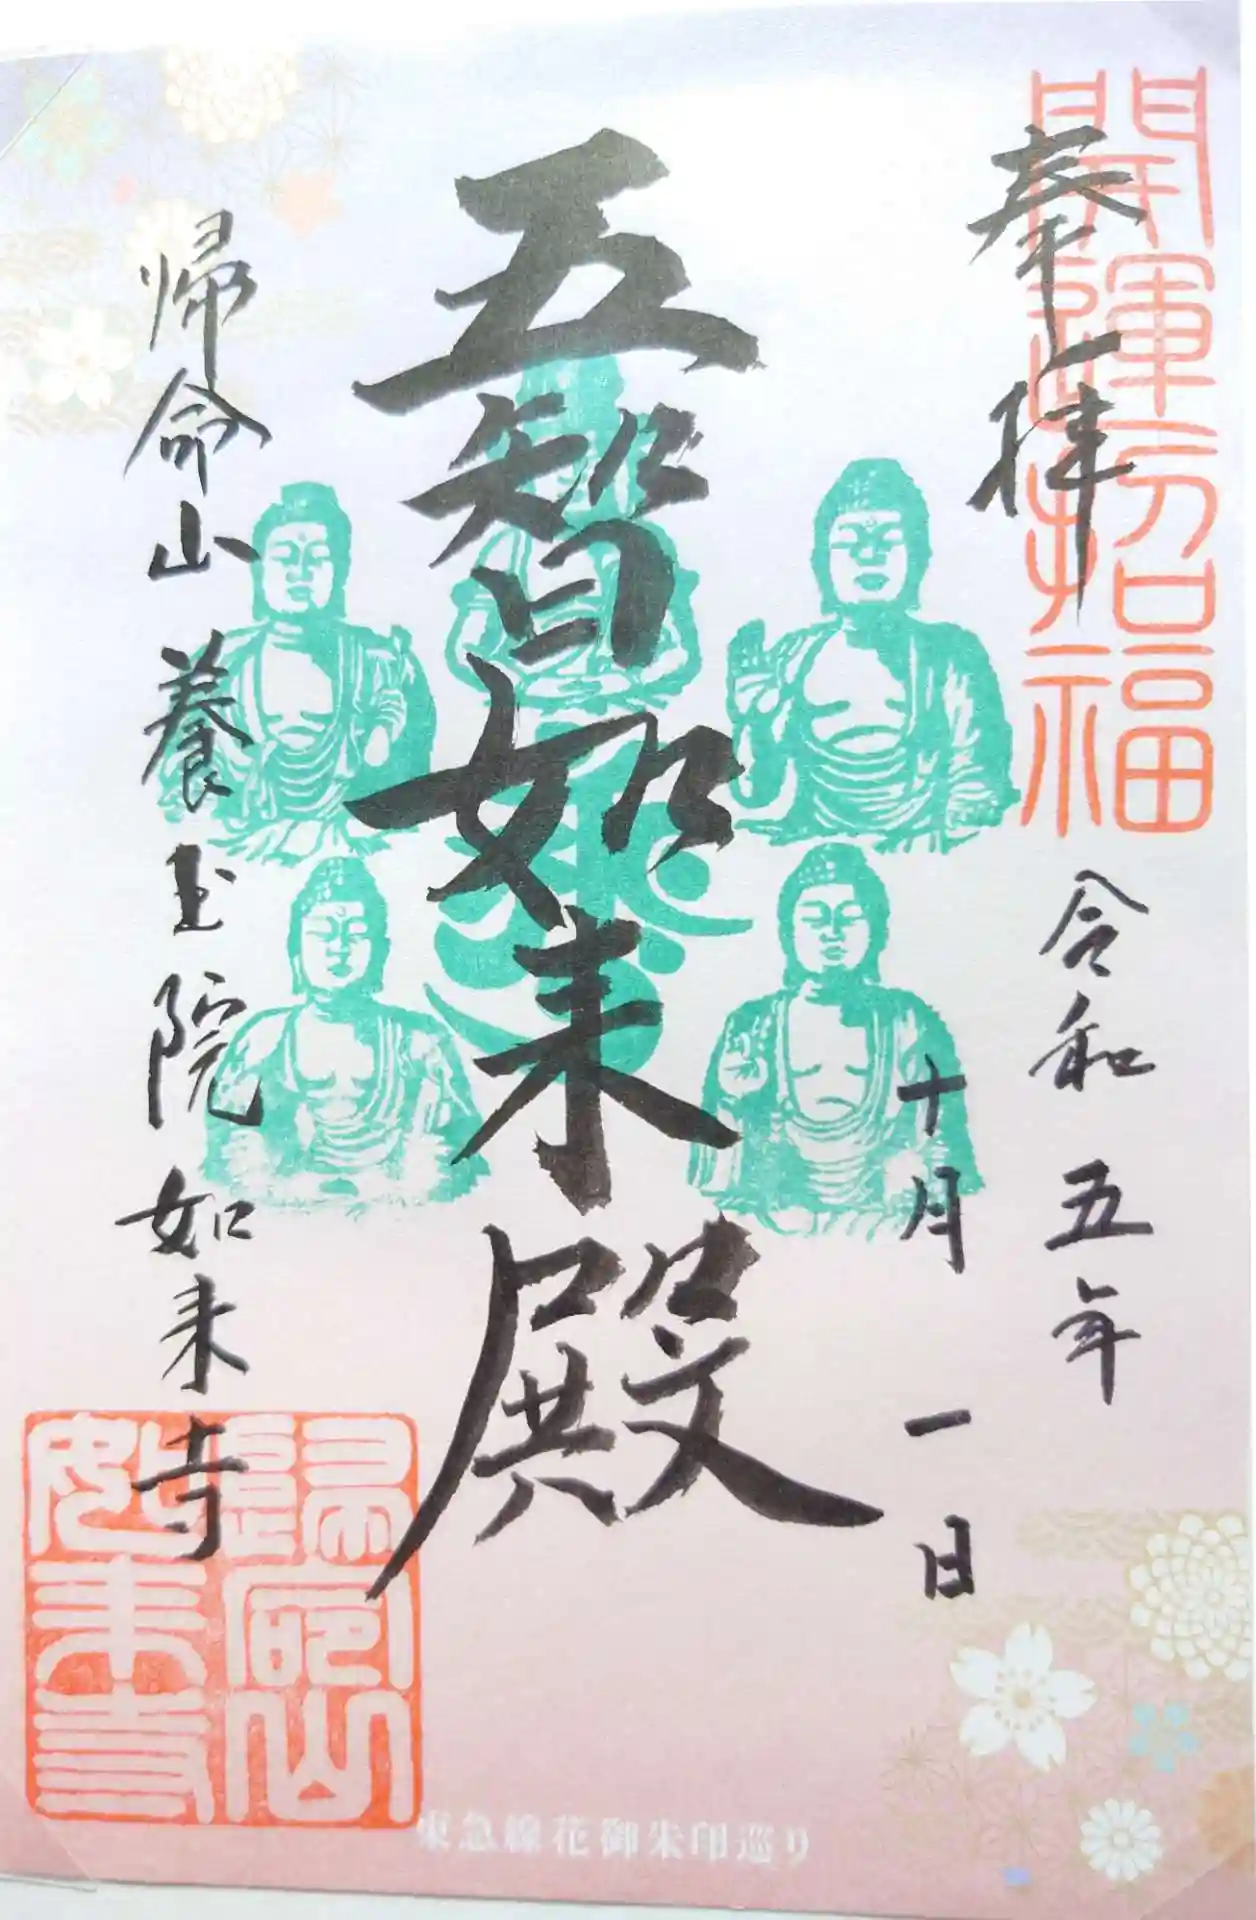 開運招福
奉拝
令和五年
十月一日
五智如来殿
帰命山養玉院如来寺
歸命山
如来寺
東急線花御朱印巡り